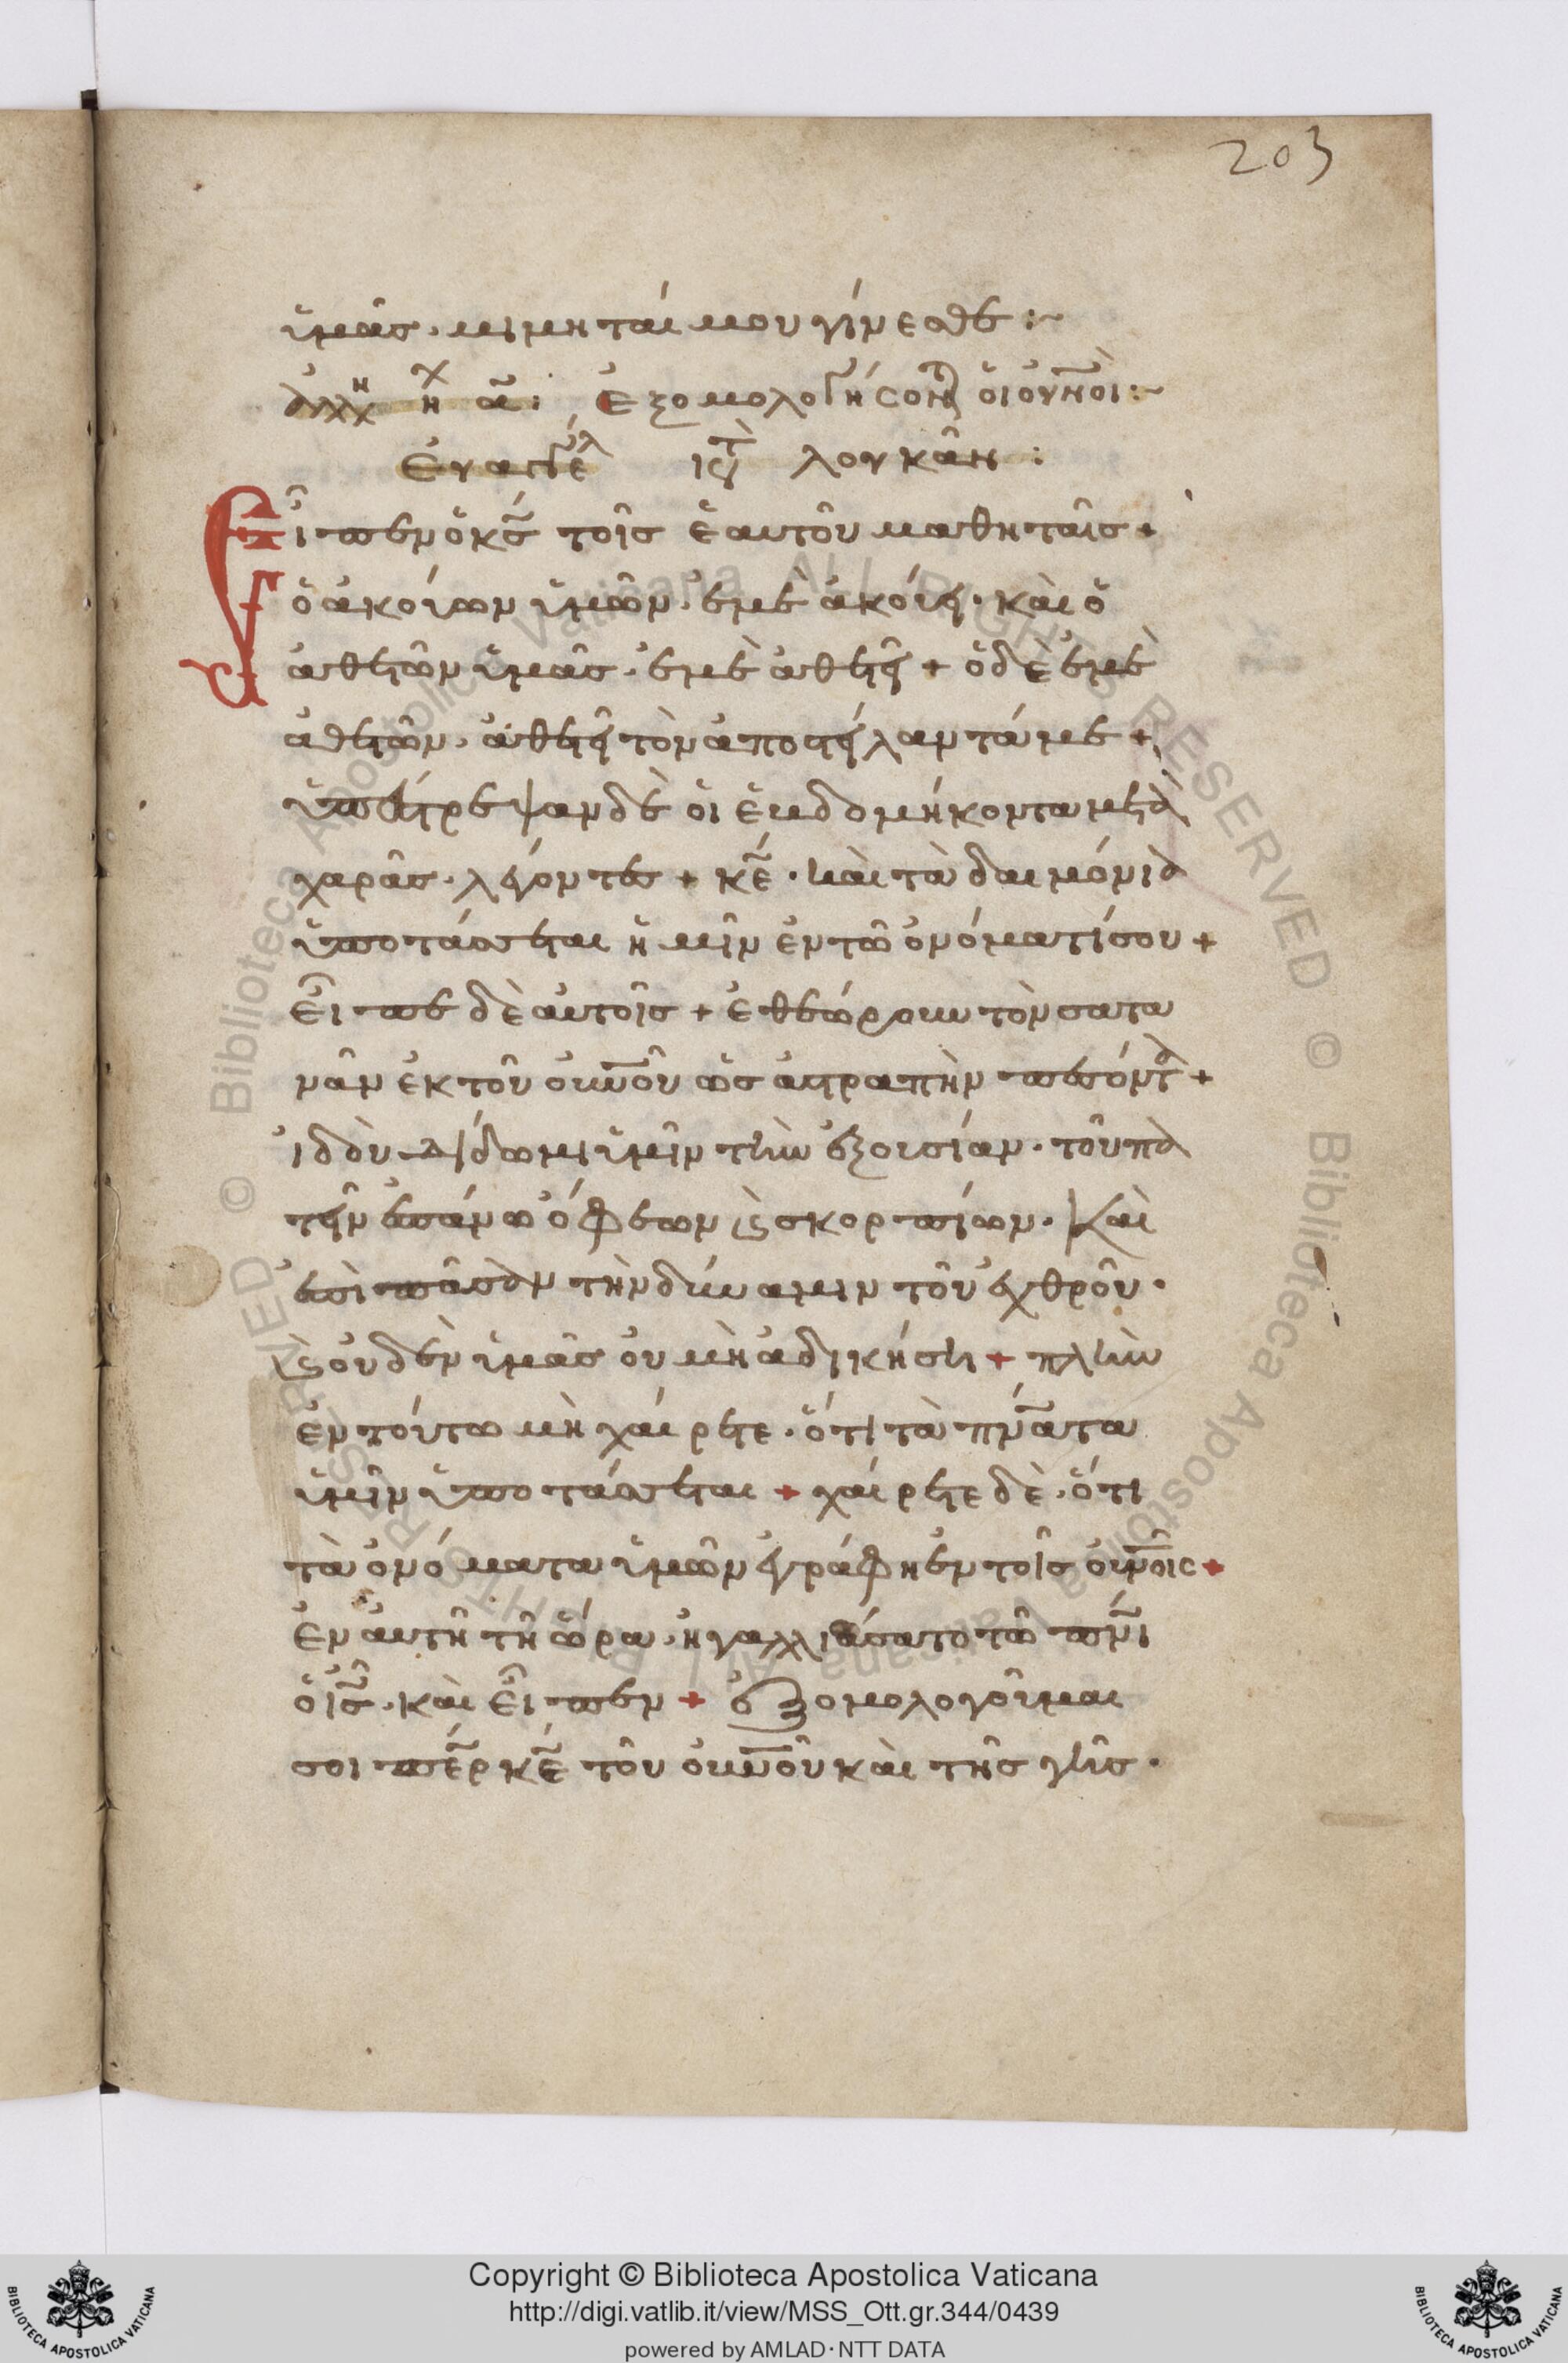 203
ὑμᾶσ· μιμηταί μου γίνεσθε :~
ἀλλη ἦχ α: Ἐξομολογήσοντ οἱ οὐνοὶ :~
Εὐαγγέλ κτ λουκᾶν :
Εἶπεν ὁ κσ τοῖσ ἑαυτοῦ μαθηταῖσ +
ὁ ἀκούων ὑμῶν· ἐμὲ ἀκούει· καὶ ὁ
ἀθετῶν ὑμᾶσ· ἐμὲ ἀθετεῖ + ὁ δὲ ἐμὲ
ἀθετῶν· ἀθετεῖ τὸν ἀποστείλαντά με +
ὑπέστρεψαν δὲ οἱ ἑβδομήκοντα μετὰ
χαρᾶσ· λέγοντεσ + κε· καὶ τὰ δαιμόνια
ὑποτάσσεται ἡμῖν ἐν τῶ ὀνόματί σου +
Εἶπε δὲ αὐτοῖσ + ἐθεώρουν τὸν σατα
νᾶν ἐκ τοῦ οὐνοῦ ὡσ ἀστραπὴν πεσόντα +
ἰδοὺ δίδωμι ὑμῖν τὴν ἐξουσίαν· τοῦ πα
τεῖν ἐπάνω ὄφεων ϗ σκορπίων· καὶ
ἐπὶ πᾶσαν τὴν δύναμιν τοῦ ἐχθροῦ·
ϗ οὐδὲν ὑμᾶσ οὐ μὴ ἀδικήσει + πλὴν
ἐν τούτω μὴ χαίρετε· ὅτι τὰ πνατα
ὑμῖν ὑποτάσσεται + χαίρετε δὲ· ὅτι
τὰ ὀνόματα ὑμῶν ἐγράφη ἐν τοῖσ οὐνοισ +
Ἐν αὐτῆ τῆ ὥρα· ἠγαλλιάσατο τῶ πνι
ὁ ισ· καὶ εἶπεν + ἐξομολογοῦμαι
σοι περ κε τοῦ οὐνοῦ καὶ τῆσ γῆσ·
Copyright © Biblioteca Apostolica Vaticana
http://digi.vatlib.it/view/MSS_Ott.gr.344/0439
powered by AMLAD·NTT DATA